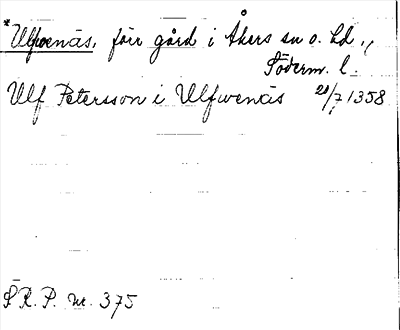 *Ulfwenäs, förr gård i Åkers sn o. hd.,
Söderm. l.
Ulf Petersson i Ulfwenäs 28/7 1358
S. R. P. nr. 375